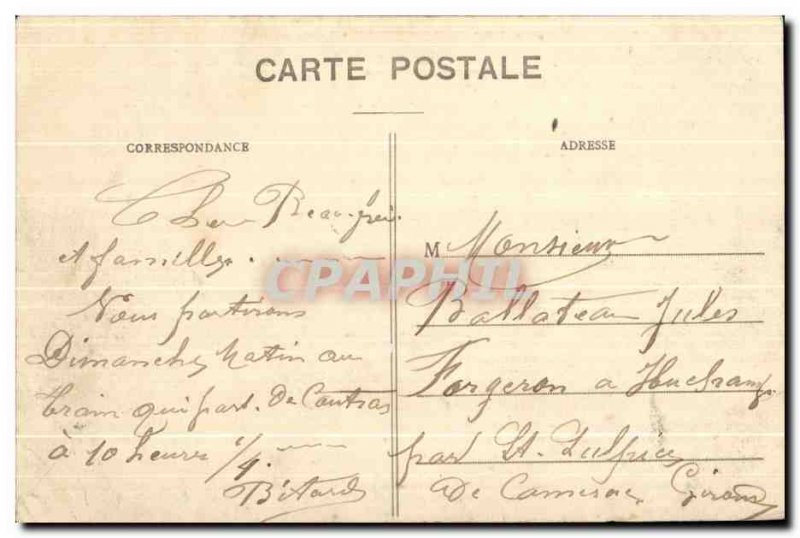 CARTE POSTALE
CORRESPONDANCE
Cher Beau frère
et famille.
Nous partirons
Dimanche Matin au
train qui part. de Coutras
à 10 heures 1/4.
Bétard
ADRESSE
M Monsieur
Ballateau Jules
Forgeron a
par St. Sulpice
de Cameirac Gironde
CPAPHIL